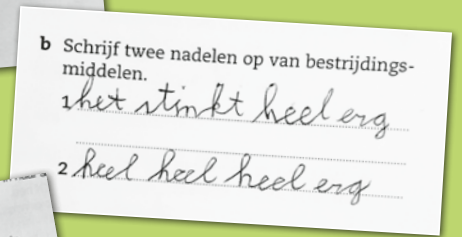 b Schrijf twee nadelen op van bestrijdings-
middelen.
1 het stinkt heel erg
2 heel heel heel erg